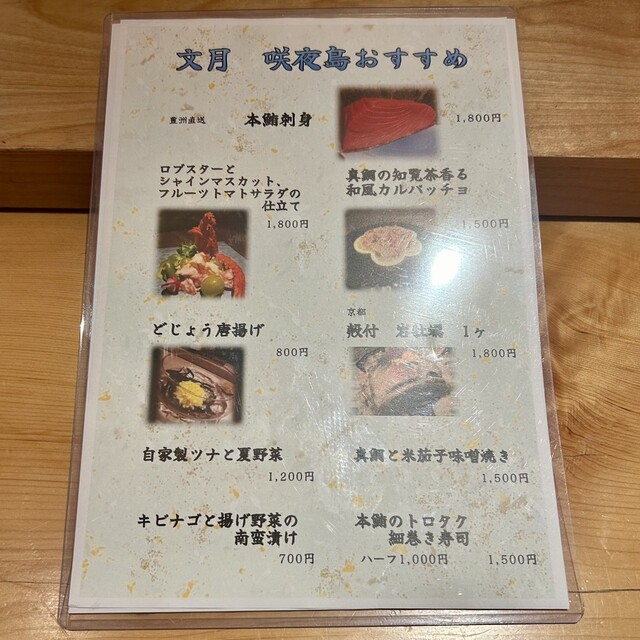 文月　咲夜島おすすめ
豊洲直送　本鮪刺身　1,800円
ロブスターと
シャインマスカット、
フルーツトマトサラダの
仕立て
1,800円
真鯛の知覧茶香る
和風カルパッチョ
1,500円
どじょう唐揚げ
800円
京都
殻付　岩牡蠣　1ヶ
1,800円
自家製ツナと夏野菜
1,200円
真鯛と米茄子味噌焼き
1,500円
キビナゴと揚げ野菜の
南蛮漬け
700円
本鮪のトロタク
細巻き寿司
ハーフ1,000円　1,500円